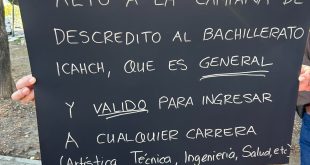 ALTO A LA CAMPAÑA DE
DESCREDITO AL BACHILLERATO
ICAHCH, QUE ES GENERAL
Y VALIDO PARA INGRESAR
A CUALQUIER CARRERA
(Artística, Técnica, Ingeniería, Salud, etc